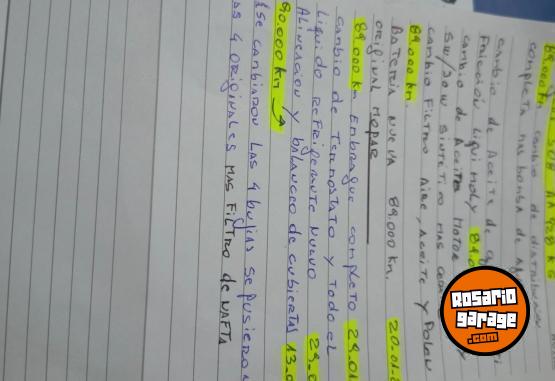 cambio de distribucion
completa mas bomba de
cambio de Aceite de
Friccion Liqui moly 89.0
cambio de Aceite motor
5W/30W SINTETICO MAS
cambio Filtro Aire, Aceite y Polen
89.000 km.
BATERIA NUEVA 89.000 Km. 20-01-
original MOPAR
89.000 km Embrague completo 24.01
cambio de Termostato y Todo el
Liquido Refrigerante Nuevo 29-0
Alineacion y balanceo de cubiertas 13-0
90.000 km
se cambiaron las 4 bujias se pusieron
as 4 originales MAS Filtro de NAFTA
Rosario
garage
.com